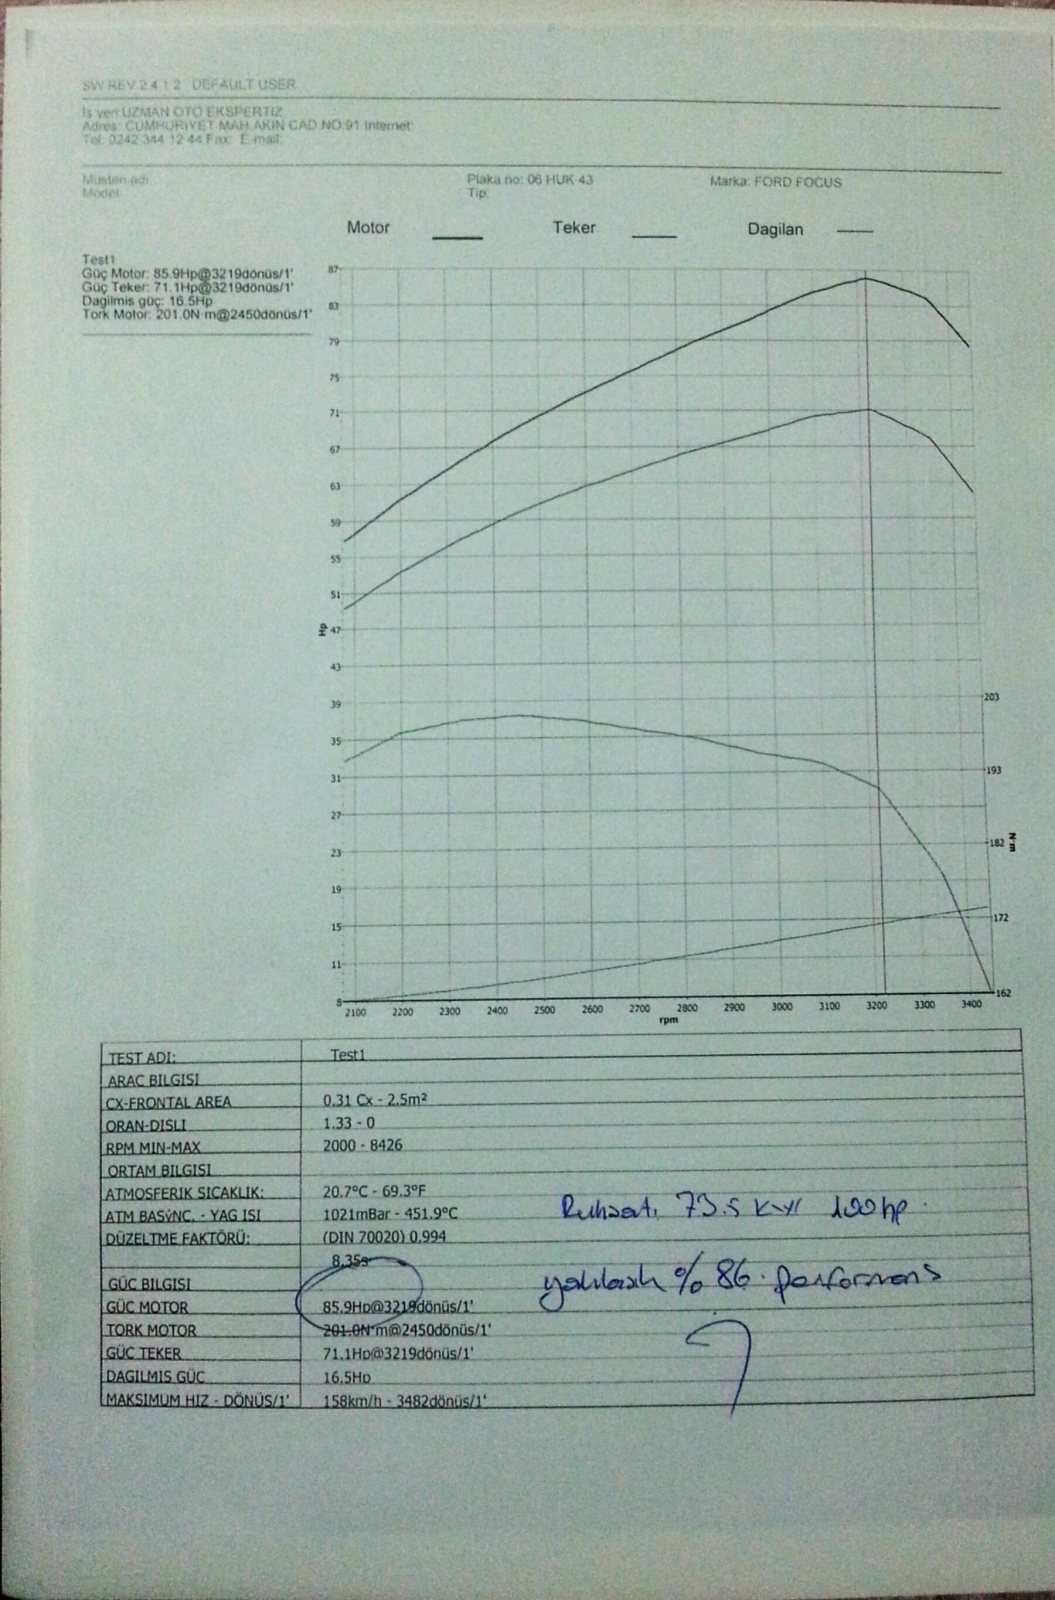 SW REV 2.4.1.2 DEFAULT USER
Is yeri:UZMAN OTO EKSPERTIZ
Adres: CUMHURIYET MAH.AKIN CAD.NO:91 Internet:
Tel: 0242 344 12 44 Fax: E mail:
Müsteri adi:
Plaka no: 06 HUK 43
Marka: FORD FOCUS
Model:
Tip:
Motor
Teker
Dagilan
Test1
Güç Motor: 85.9Hp@3219dönüs/1'
Güç Teker: 71.1Hp@3219dönüs/1'
Dagilmis güç: 16.5Hp
Tork Motor: 201.0N·m@2450dönüs/1'
87
83
79
75
71
67
63
59
55
51
Hp
47
43
39
35
31
27
23
19
15
11
8
203
193
182
N·m
172
162
2100 2200 2300 2400 2500 2600 2700 2800 2900 3000 3100 3200 3300 3400
rpm
TEST ADI: Test1
ARAC BILGISI
CX-FRONTAL AREA 0.31 Cx - 2.5m²
ORAN-DISLI 1.33 - 0
RPM MIN-MAX 2000 - 8426
ORTAM BILGISI
ATMOSFERIK SICAKLIK: 20.7°C - 69.3°F
ATM BASýNC. - YAG ISI 1021mBar - 451.9°C
DÜZELTME FAKTÖRÜ: (DIN 70020) 0.994
8.35s
GÜC BILGISI
GÜC MOTOR 85.9Hp@3219dönüs/1'
TORK MOTOR 201.0N·m@2450dönüs/1'
GÜC TEKER 71.1Hp@3219dönüs/1'
DAGILMIS GÜC 16.5Hp
MAKSIMUM HIZ - DÖNÜS/1' 158km/h - 3482dönüs/1'
Ruhsatı 73.5 kw 100hp.
yaklasık %86. performans